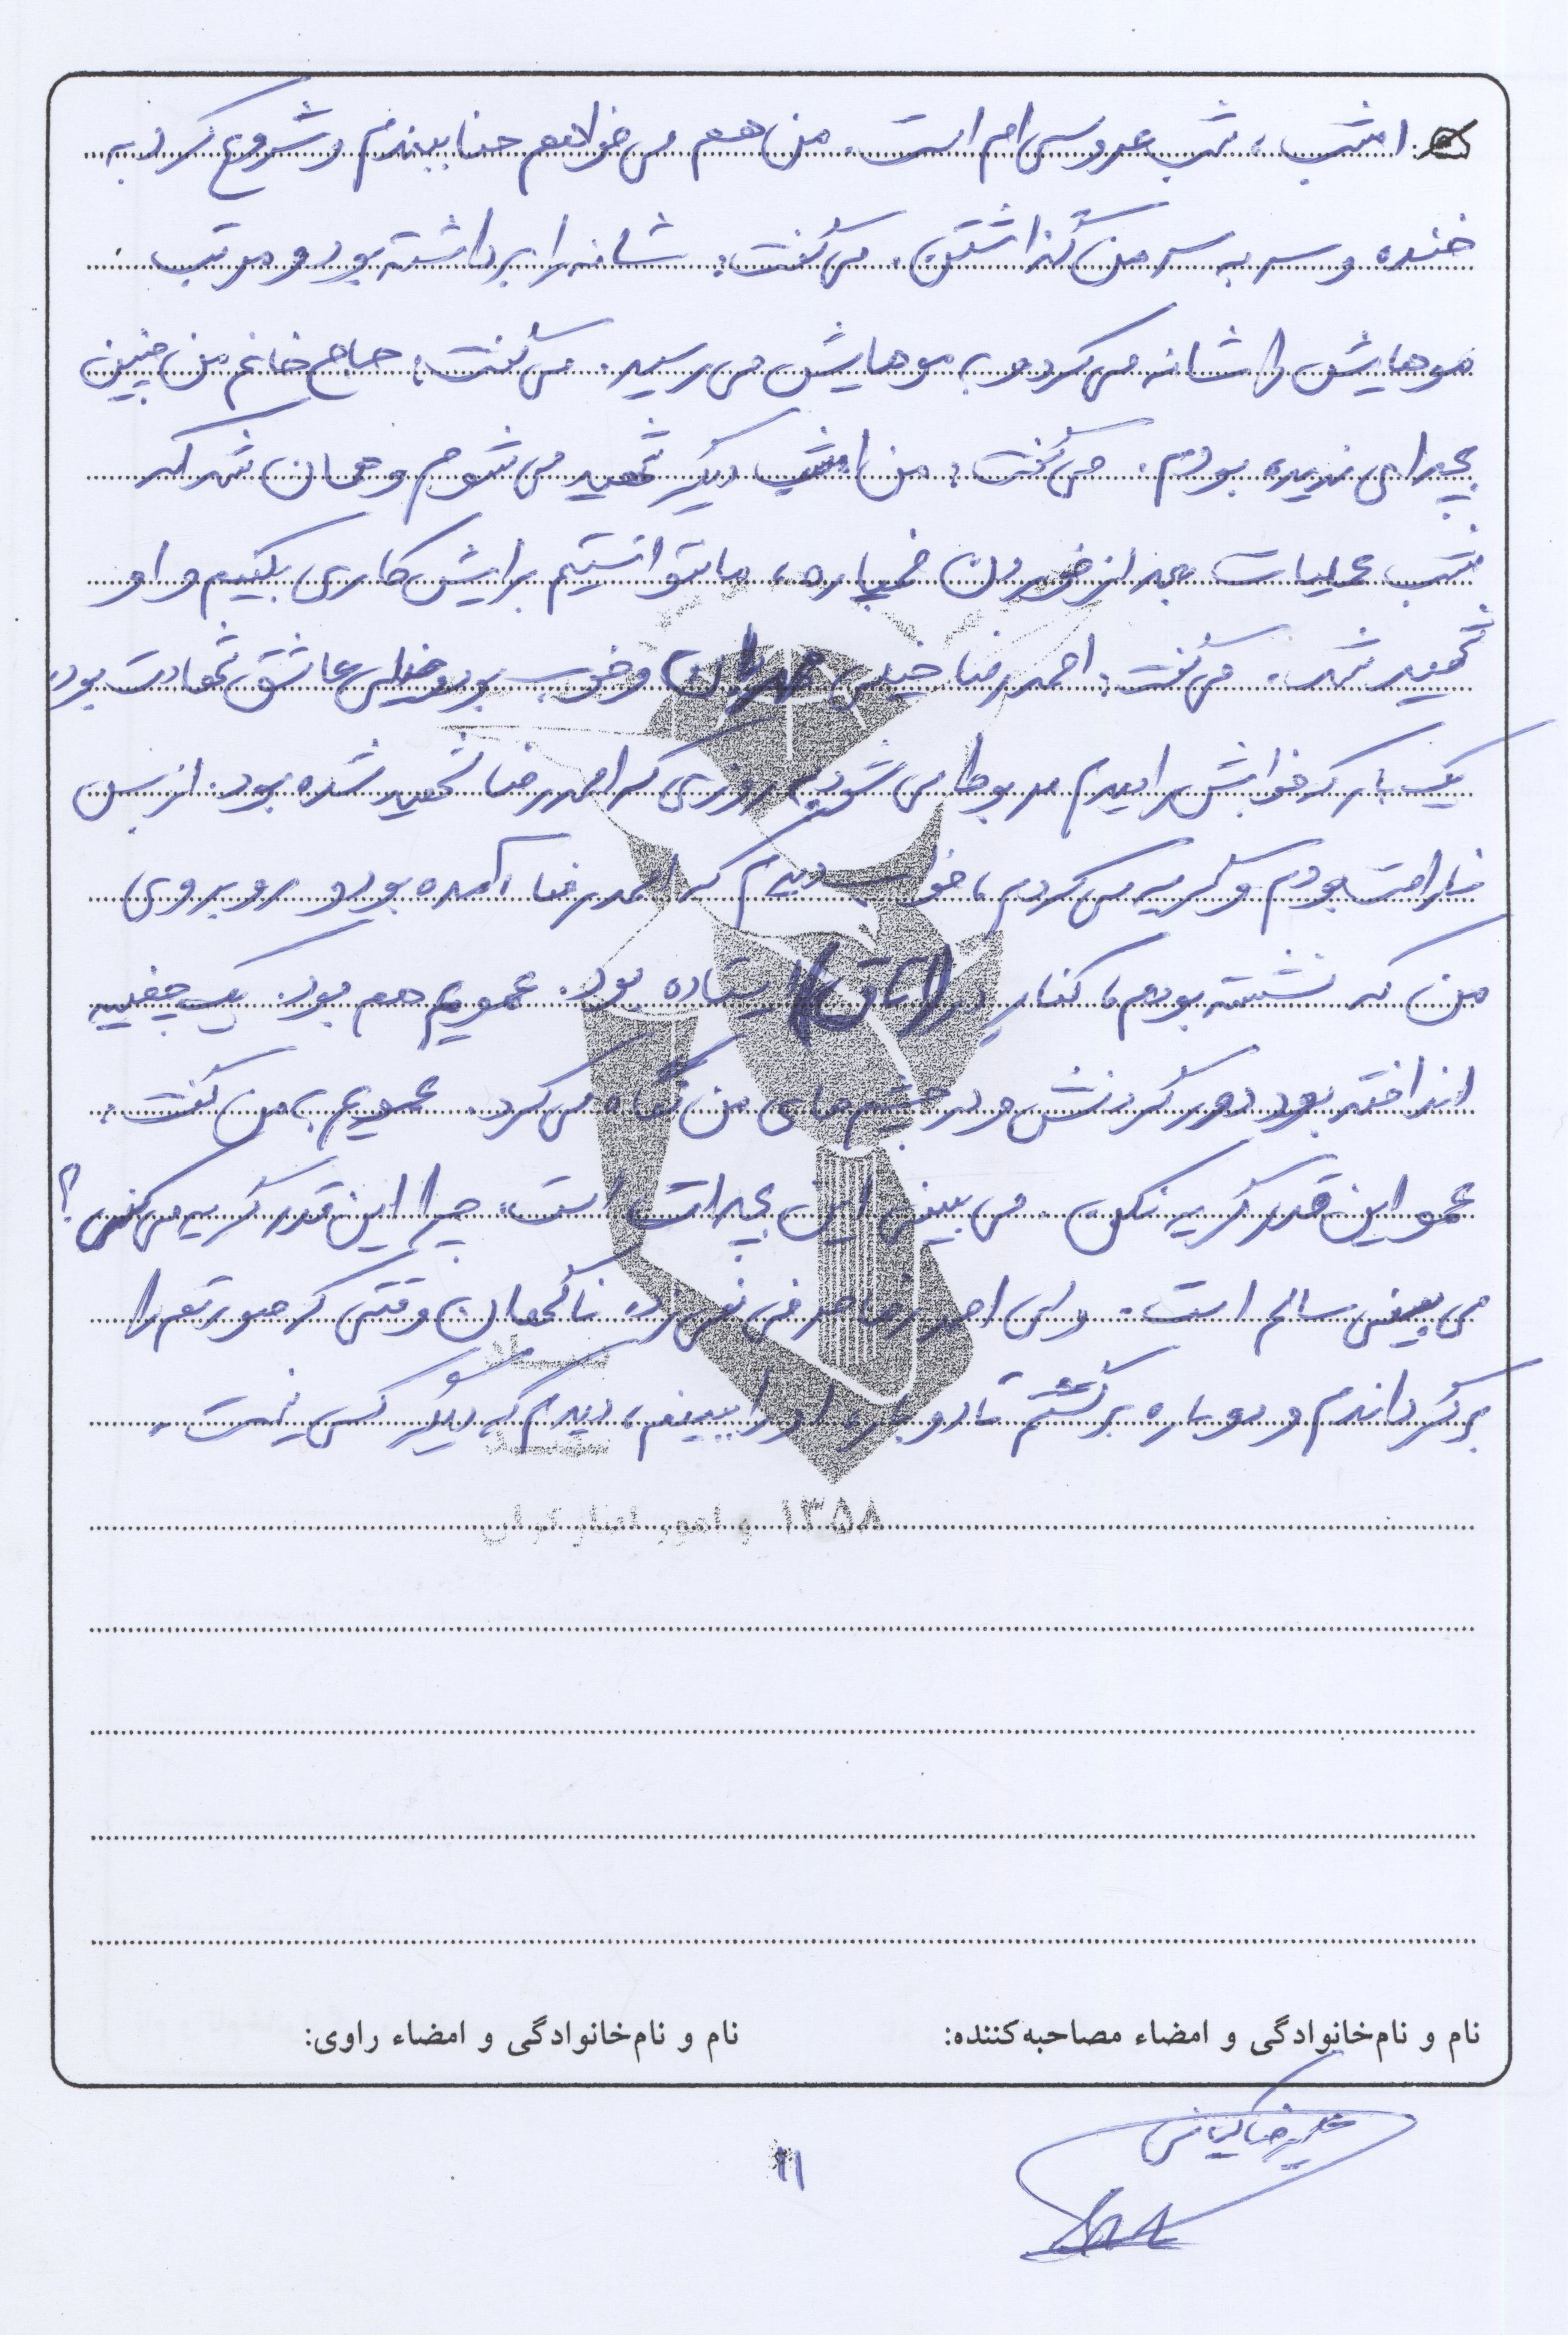 امشب، شب عروسی ام است. من هم می خواهم حنا ببندم و شروع کرد به
خنده و سر به سر من گذاشتن. می گفت: شانه را برداشته بود و مرتب
موهایش را شانه می کرد و به موهایش می رسید. می گفت: حاج خانم من چنین
بچه ای ندیده بودم. می گفت: من امشب دیگر شهید می شوم و همان شد که
شب عملیات بعد از خوردن خمپاره، ما نتوانستیم برایش کاری بکنیم و او
شهید شد. می گفت: احمدرضا خیلی مهربان و خوب بود و خیلی عاشق شهادت بود.
یک بار که خوابش را دیدم مربوط می شود به روزی که احمدرضا شهید شده بود. از بس
ناراحت بودم و گریه می کردم، خواب دیدم که احمدرضا آمده بود و روبروی
من که نشسته بودم، کنار در (اتاق) ایستاده بود. عمویم هم بود. یک چفیه
انداخته بود دور گردنش و در چشم های من نگاه می کرد. عمویم به من گفت:
عمو این قدر گریه نکن. می بینی این بچه ات است. چرا این قدر گریه می کنی؟
می بینی سالم است. ولی احمدرضا حرفی نمی زد. ناگهان وقتی که صورتم را
برگرداندم و دوباره برگشتم تا دوباره او را ببینم، دیدم که دیگر کسی نیست.
۱۳۵۸
نام و نام‌خانوادگی و امضاء مصاحبه‌کننده: نام و نام‌خانوادگی و امضاء راوی:
علیرضا کیانی
۱۱